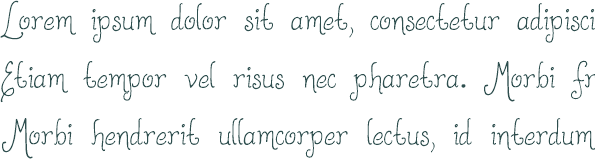 Lorem ipsum dolor sit amet, consectetur adipisci
Etiam tempor vel risus nec pharetra. Morbi fr
Morbi hendrerit ullamcorper lectus, id interdum